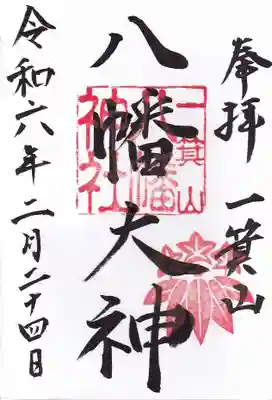 奉拝 一箕山
八幡大神
令和六年二月二十四日
一箕山
八幡
神社